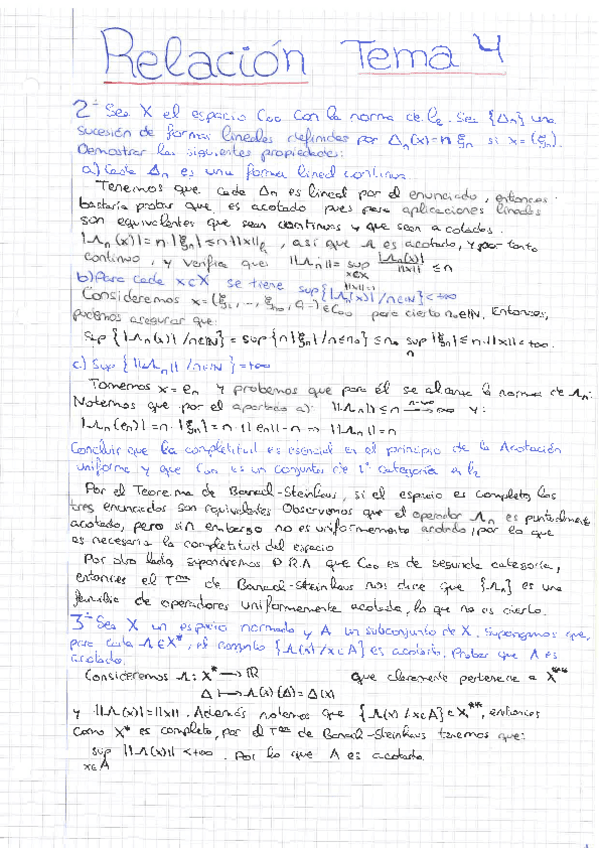 Relación Tema 4
2- Sea X el espacio C₀₀ con la norma de l₂. Sea {Λn} una
sucesión de formas lineales definidas por Λn(x)=n ξn si x=(ξn).
Demostrar las siguientes propiedades:
a) Cada Λn es una forma lineal continua.
Tenemos que cada Λn es lineal por el enunciado, entonces
bastaría probar que es acotado pues para aplicaciones lineales
son equivalentes que sean continuas y que sean acotadas.
|Λn(x)|=n·|ξn|≤n·||x||, así que Λ es acotado, y por tanto
continuo, y verifica que ||Λn||= sup |Λn(x)|/||x|| ≤n
b) Para cada x∈X se tiene sup{|Λn(x)|/n∈ℕ}<+∞
Consideremos x=(ξ₁,...,ξn₀,0...)∈C₀₀ para cierto n₀∈ℕ. Entonces,
podemos asegurar que:
Sup{|Λn(x)|/n∈ℕ}=sup{n|ξn|/n≤n₀}≤n₀ sup|ξn|≤n₀·||x||<+∞.
c) Sup{||Λn||/n∈ℕ}=+∞
Tomemos x=en y probemos que para él se alcanza la norma de Λn:
Notemos que por el apartado a): ||Λn||≤n → ∞ y:
|Λn(en)|=n·|ξn|=n·||en||=n ⇒ ||Λn||=n
Concluir que la completitud es esencial en el principio de la Acotación
uniforme y que C₀₀ es un conjunto de 1ª categoría en l₂
Por el Teorema de Banach-Steinhaus, si el espacio es completo los
tres enunciados son equivalentes Observamos que el operador Λn es puntualmente
acotado, pero sin embargo no es uniformemente acotado, por lo que
es necesaria la completitud del espacio
Por otro lado, supondremos P.R.A que C₀₀ es de segunda categoría,
entonces el Tma de Banach-Steinhaus nos dice que {Λn} es una
familia de operadores uniformemente acotada, lo que no es cierto.
3- Sea X un espacio normado y A un subconjunto de X. Supongamos que,
para cada Λ∈X*, el conjunto {Λ(x)/x∈A} es acotado. Probar que A es
acotado.
Consideremos Λ: X* → ℝ que claramente pertenece a X**
Δ ↦ Λ(x)(Δ)=Δ(x)
y ||Λ(x)||=||x||. Además notemos que {Λ(x)/x∈A}⊂X**, entonces
Como X* es completo, por el Tma de Banach-Steinhaus tenemos que:
sup ||Λ(x)|| <+∞. Por lo que A es acotado.
x∈A